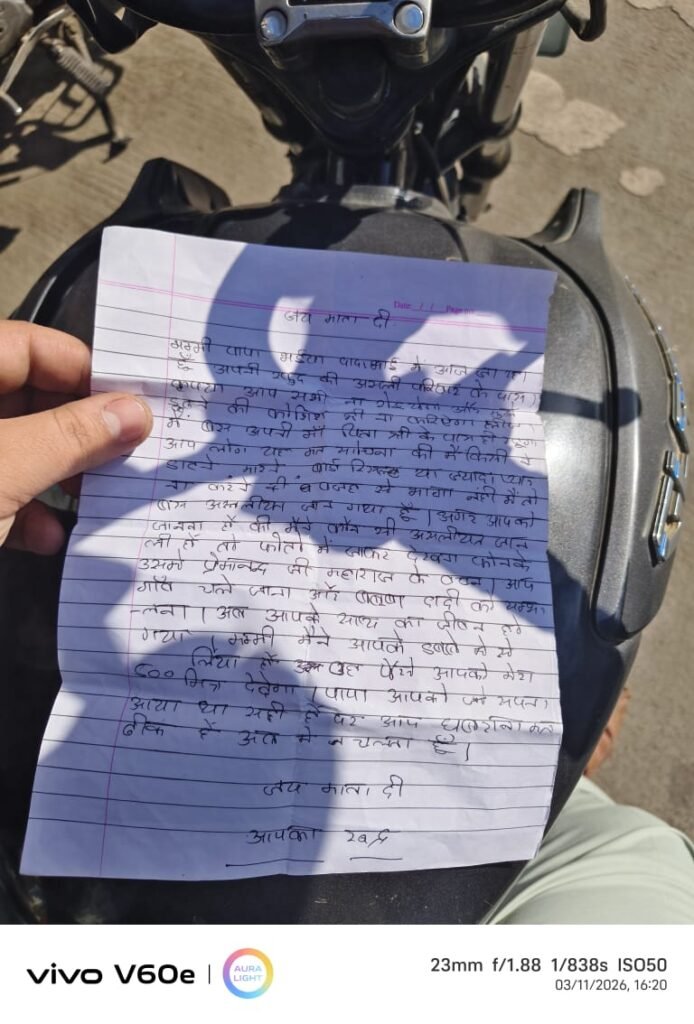 Date / / Page no
जय माता दी
मम्मी पापा भईया में आज जा रहा
हूँ अपनी खुद की असली परिवार के पास।
कृपया आप सभी ना और मुझे
ढूढ़ने की कोशिश भी ना करियेगा
में बस अपनी माँ पिता श्री के पास ही
आप लोग यह मत सोचना की में किसी ने
डाटने मारने या ज्यादा प्यार
ना करने की वजह से भागा नहीं मैं तो
बस असलीयत जान गया हूँ। अगर आपको
जानना हो की मैंने कौन सी असलीयत जान
ली हो तो फोटो में जाकर देखना फोनके
उसमे प्रेमानन्द जी महाराज के वचन। आप
चले जाना और दादी को सम्भा
-लेना। अब आपके साथ का जीवन हो
गया। मम्मी मैंने आपको
लिया हो उसका वह पैसे आपको मेरा
मित्र देदेगा। पापा आपको जो सपना
आया था सही है पर आप घबराना मत
ठीक है अब में चलता हूँ।
जय माता दी
आपका
vivo V60e
AURA LIGHT
23mm f/1.88 1/838s ISO50
03/11/2026, 16:20